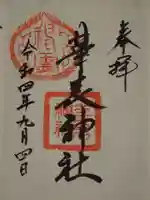 奉拝
華表神社
令和四年九月四日